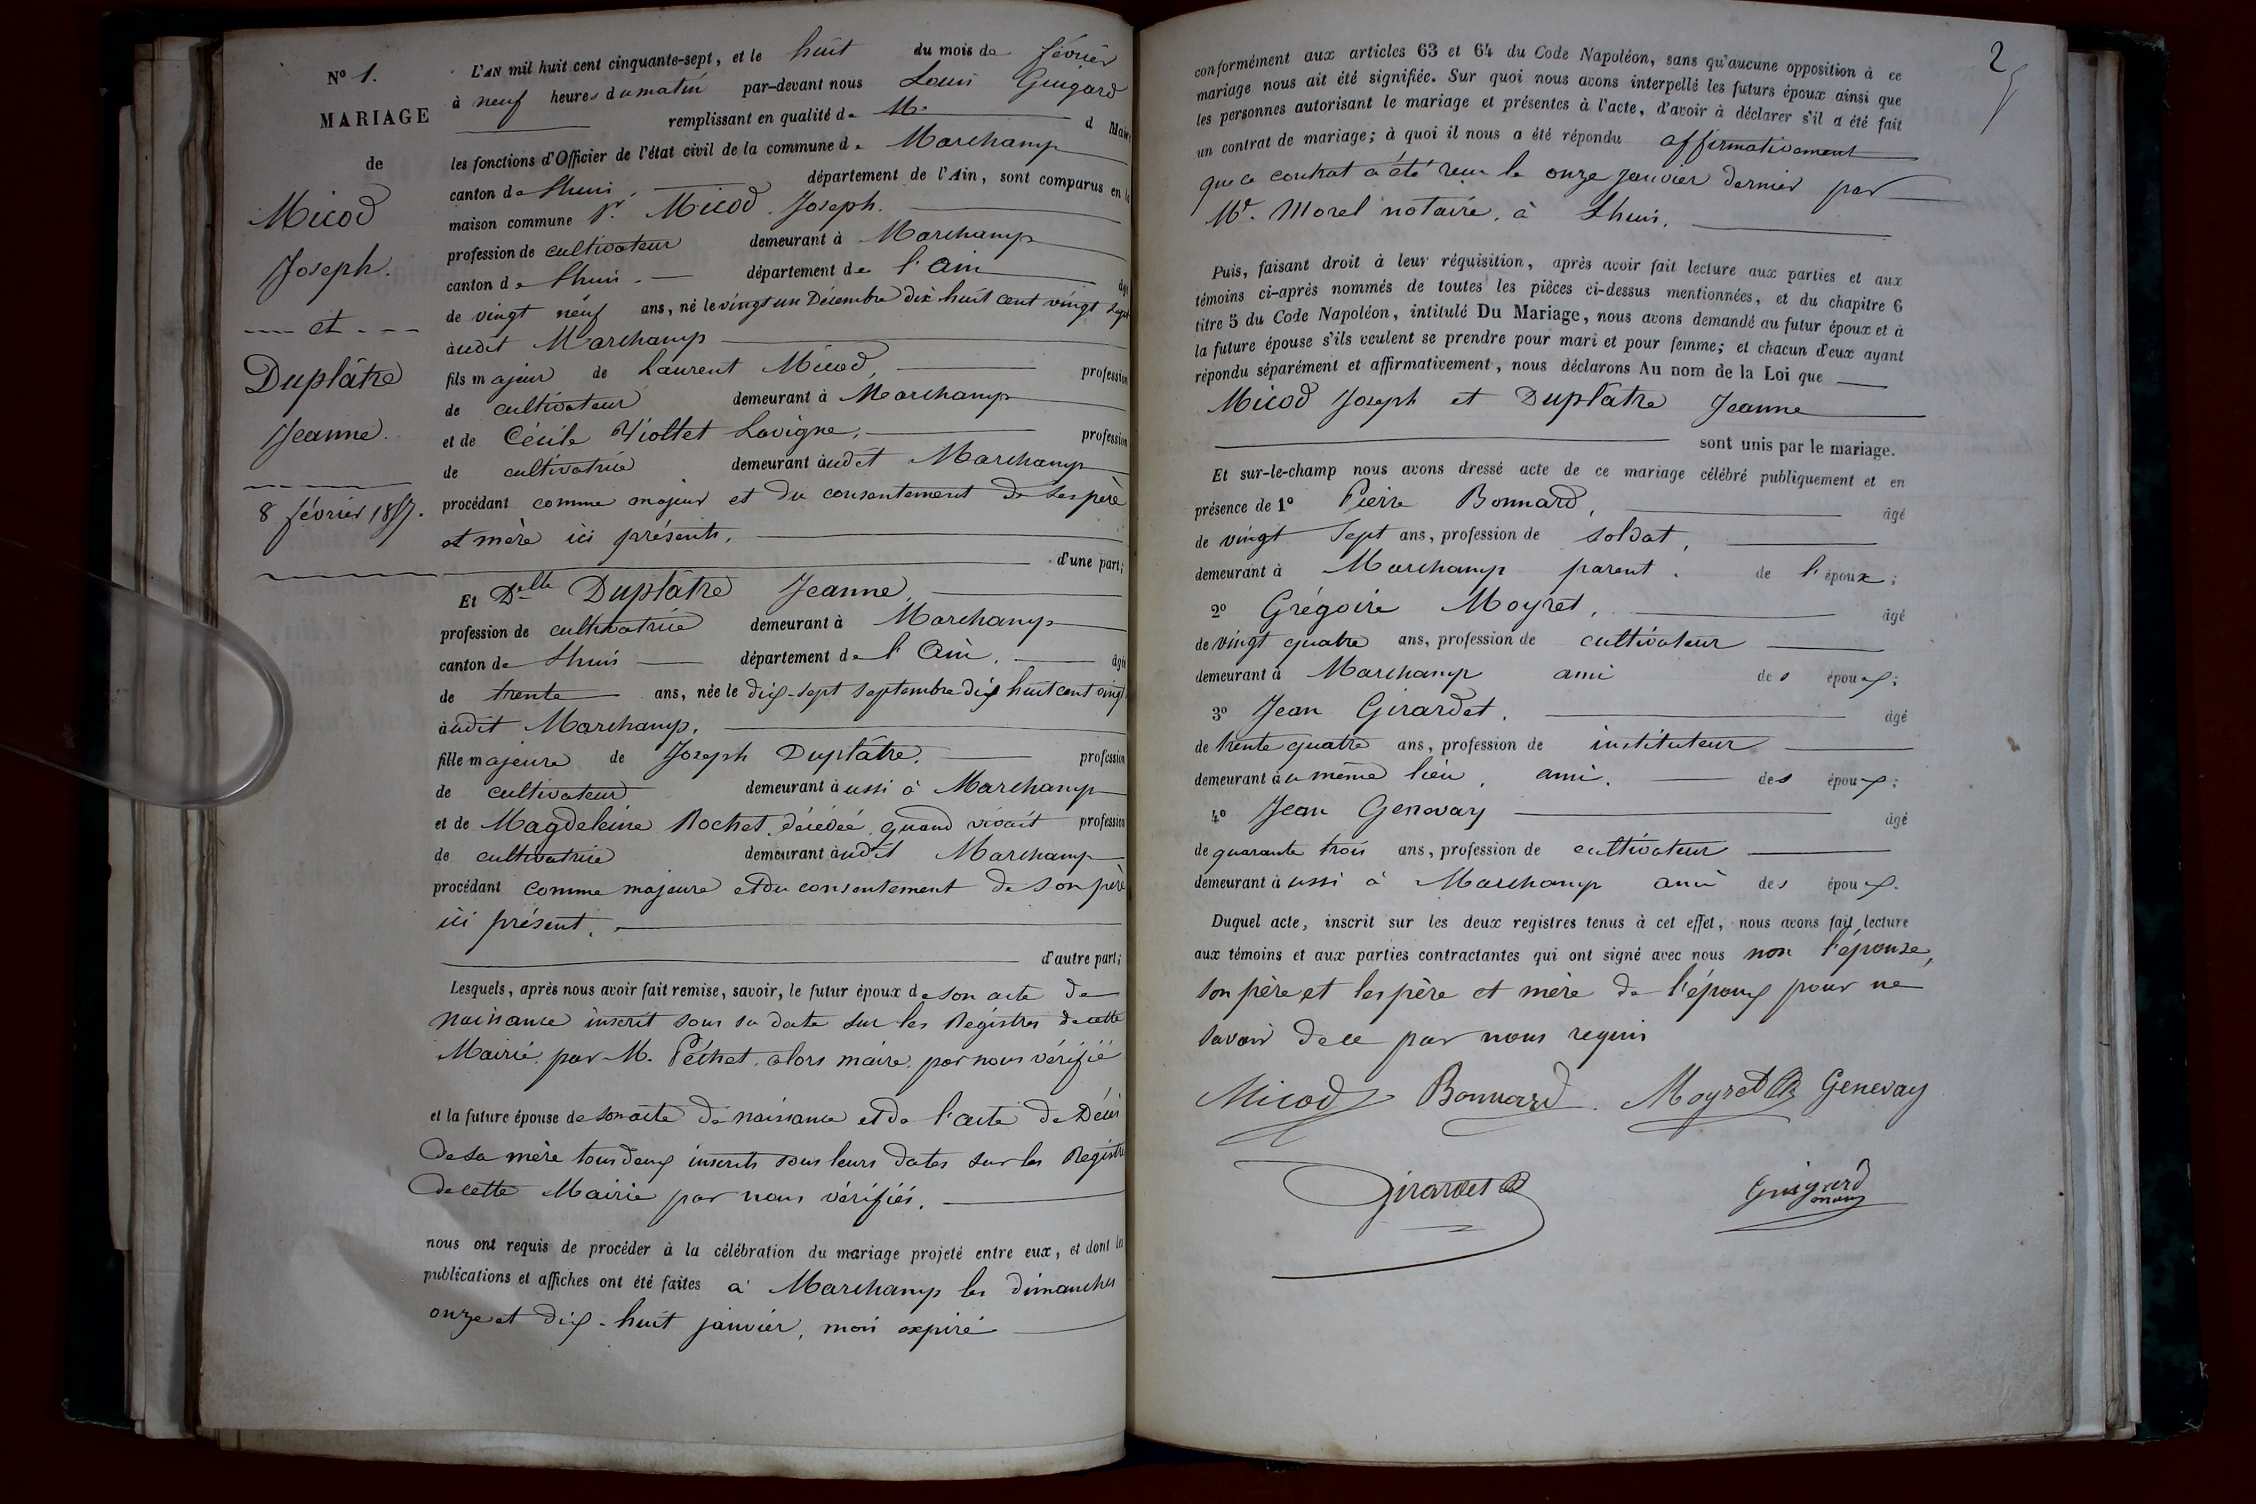 N° 1.
MARIAGE
de
Micod
Joseph.
et
Duplâtre
Jeanne.
8 février 1857.
L'AN mil huit cent cinquante-sept, et le huit du mois de février
à neuf heures du matin par-devant nous Louis Guigard
remplissant en qualité de M d Maire
les fonctions d'Officier de l'état civil de la commune de Marchamp
canton de Lhuis, département de l'Ain, sont comparus en la
maison commune Sr. Micod Joseph.
profession de cultivateur demeurant à Marchamp
canton de Lhuis département de l'Ain âgé
de vingt neuf ans, né le vingt un Décembre dix huit cent vingt sept
audit Marchamp
fils majeur de Laurent Micod, profession
de cultivateur demeurant à Marchamp
et de Cécile Viollet Lavigne, profession
de cultivatrice demeurant audit Marchamp
procédant comme majeur et du consentement de ses père
et mère ici présents,
d'une part;
Et Delle Duplâtre Jeanne,
profession de cultivatrice demeurant à Marchamp
canton de Lhuis département de l'Ain, âgée
de trente ans, née le dix-sept septembre dix huit cent vingt
audit Marchamp,
fille majeure de Joseph Duplâtre, profession
de cultivateur demeurant aussi à Marchamp
et de Magdeleine Rochet, décédée, quand vivait profession
de cultivatrice demeurant audit Marchamp
procédant comme majeure et du consentement de son père
ici présent.
d'autre part;
Lesquels, après nous avoir fait remise, savoir, le futur époux de son acte de
naissance inscrit sous sa date sur les Registres de cette
Mairie par M. Péchet, alors maire, par nous vérifié
et la future épouse de son acte de naissance et de l'acte de Décès
de sa mère tous deux inscrits sous leurs dates sur les Registres
de cette Mairie par nous vérifiés.
nous ont requis de procéder à la célébration du mariage projeté entre eux, et dont les
publications et affiches ont été faites à Marchamp les dimanches
onze et dix-huit janvier, mois expiré
2
conformément aux articles 63 et 64 du Code Napoléon, sans qu'aucune opposition à ce
mariage nous ait été signifiée. Sur quoi nous avons interpellé les futurs époux ainsi que
les personnes autorisant le mariage et présentes à l'acte, d'avoir à déclarer s'il a été fait
un contrat de mariage; à quoi il nous a été répondu affirmativement
que ce contrat a été reçu le onze janvier dernier par
Me. Morel notaire, à Lhuis.
Puis, faisant droit à leur réquisition, après avoir fait lecture aux parties et aux
témoins ci-après nommés de toutes les pièces ci-dessus mentionnées, et du chapitre 6
titre 5 du Code Napoléon, intitulé Du Mariage, nous avons demandé au futur époux et à
la future épouse s'ils veulent se prendre pour mari et pour femme; et chacun d'eux ayant
répondu séparément et affirmativement, nous déclarons Au nom de la Loi que
Micod Joseph et Duplâtre Jeanne
sont unis par le mariage.
Et sur-le-champ nous avons dressé acte de ce mariage célébré publiquement et en
présence de 1° Pierre Bonnard, âgé
de vingt sept ans, profession de soldat,
demeurant à Marchamp parent de l'époux;
2° Grégoire Moyret, âgé
de vingt quatre ans, profession de cultivateur
demeurant à Marchamp ami des époux;
3° Jean Girardet, âgé
de trente quatre ans, profession de instituteur
demeurant au même lieu, ami. des époux;
4° Jean Genevay âgé
de quarante trois ans, profession de cultivateur
demeurant aussi à Marchamp ami des époux.
Duquel acte, inscrit sur les deux registres tenus à cet effet, nous avons fait lecture
aux témoins et aux parties contractantes qui ont signé avec nous non l'épouse,
son père et les père et mère de l'époux pour ne
savoir de ce par nous requis
Micod Bonnard Moyret Genevay
Girardet Guigard
maire